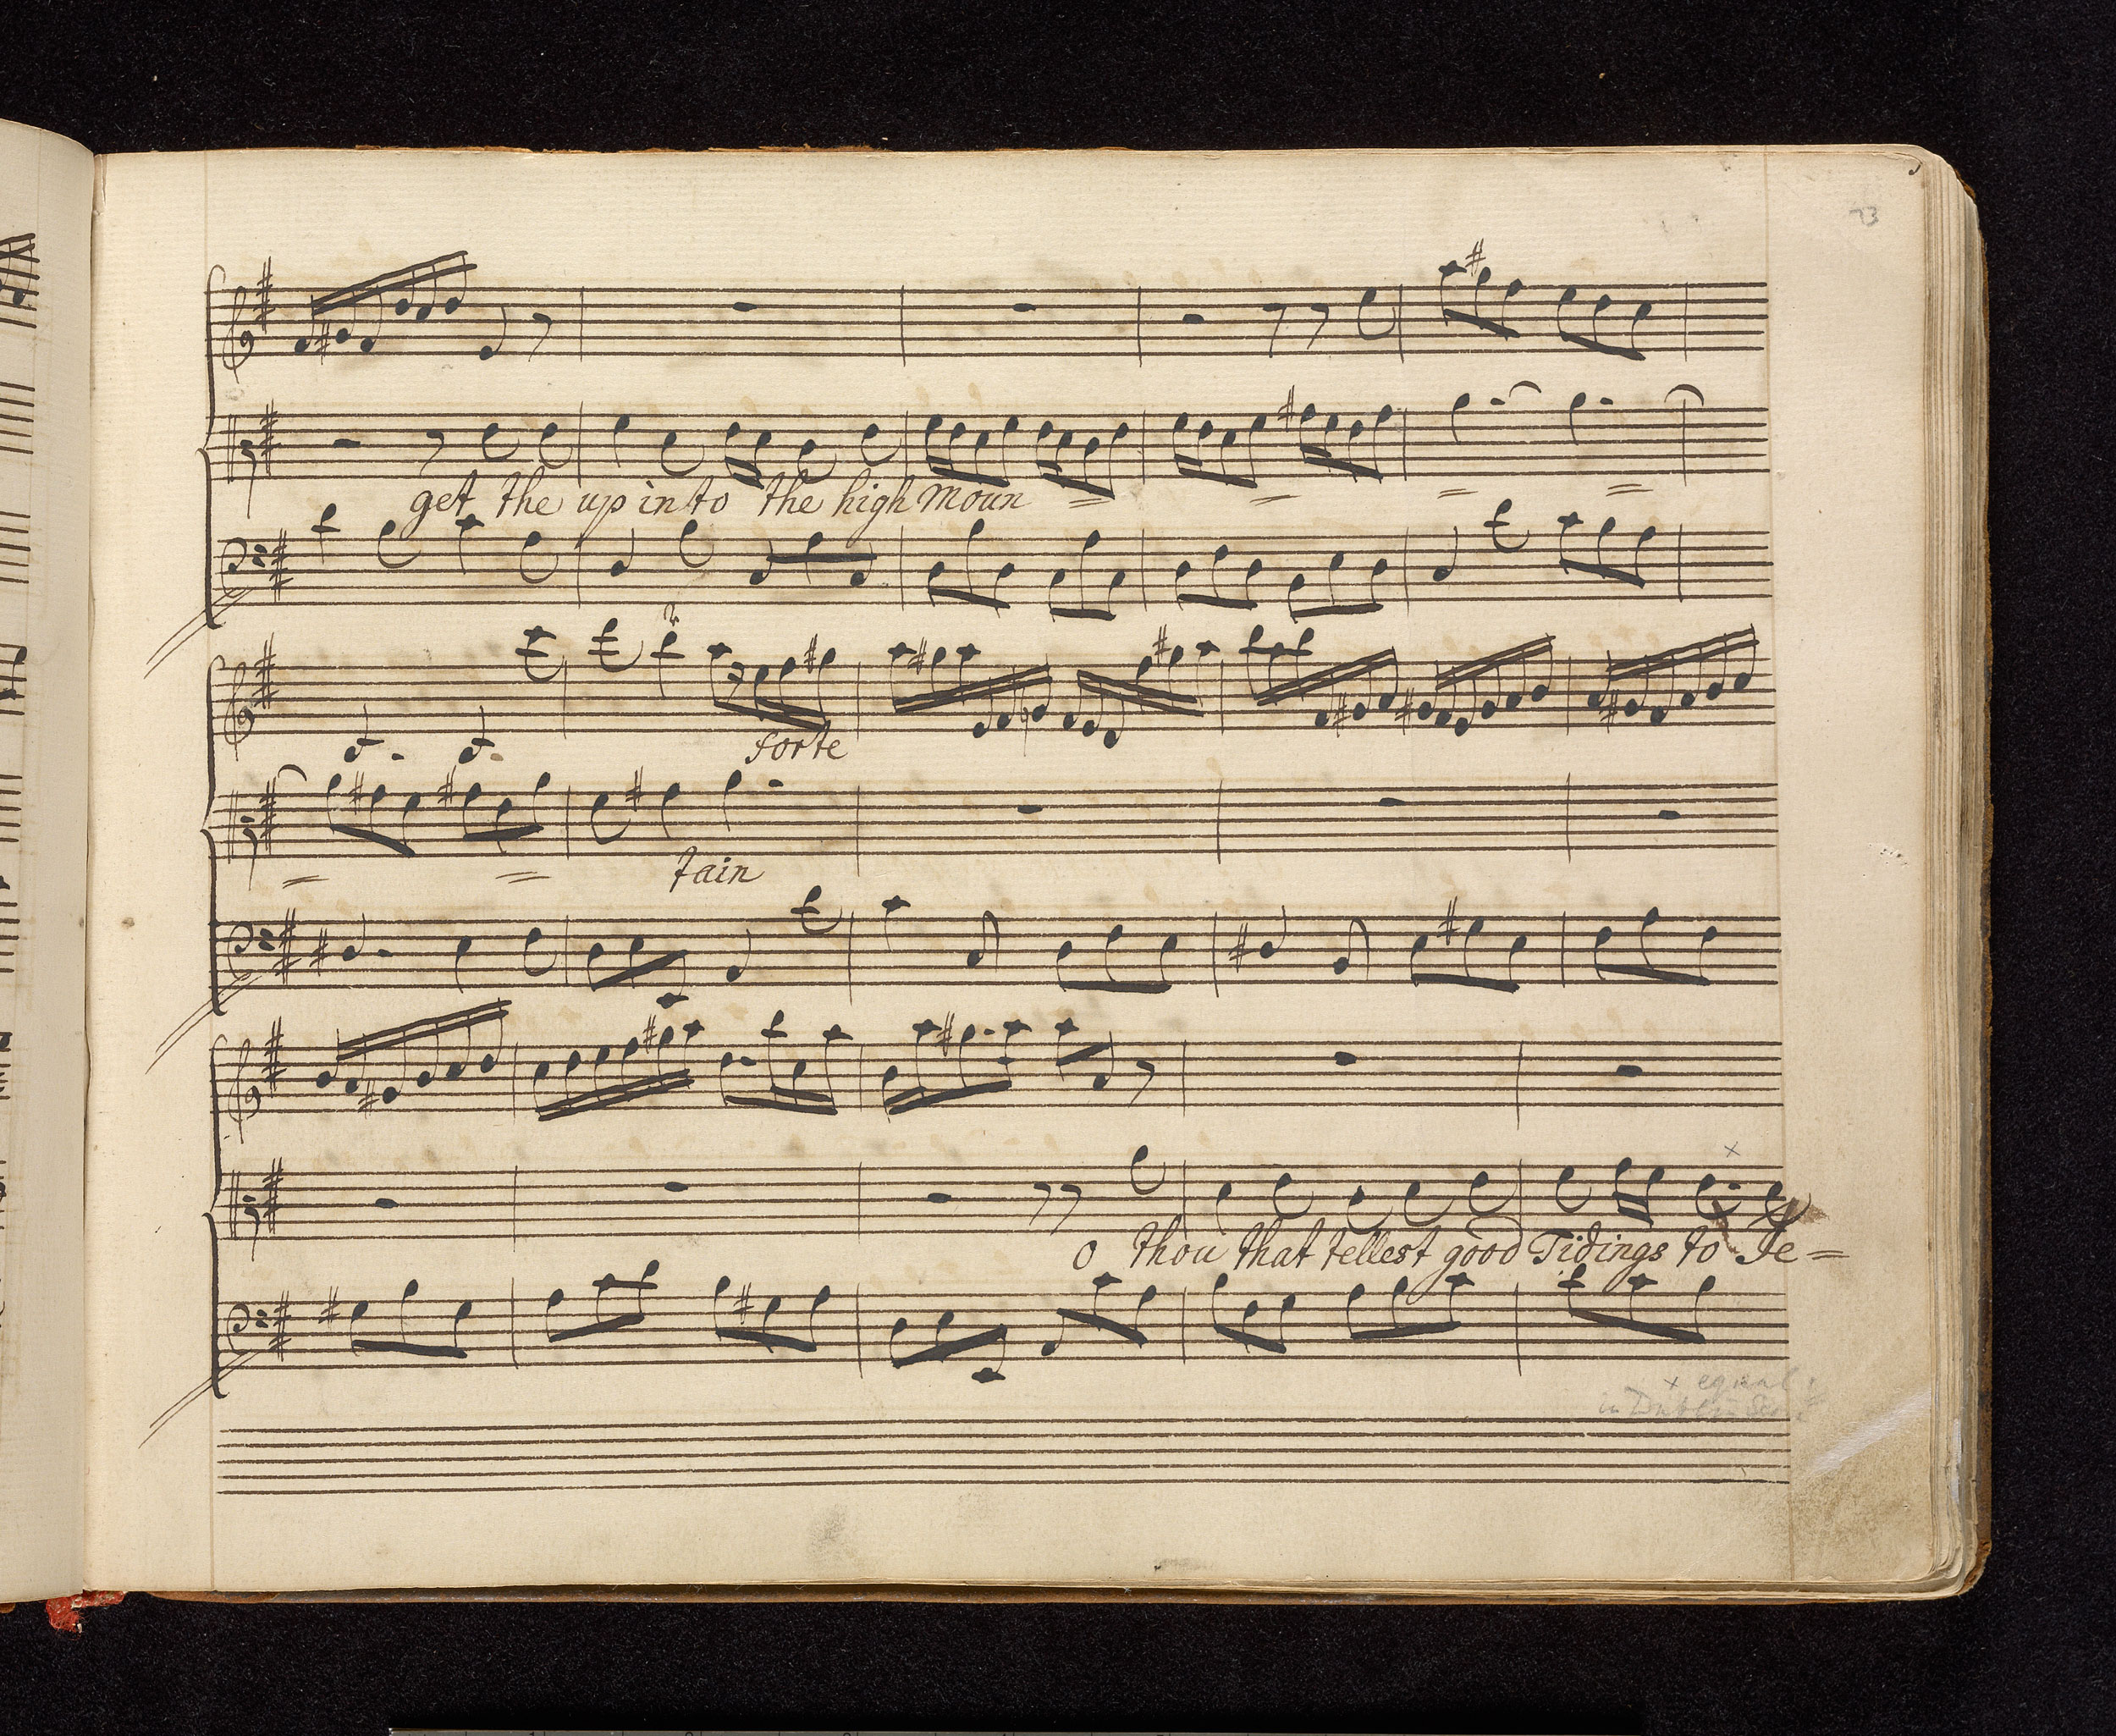 73
get the up into the high Moun = = = =
forte
= = tain
x
o thou that tellest good Tidings to Je =
x equal
in Dublin Score